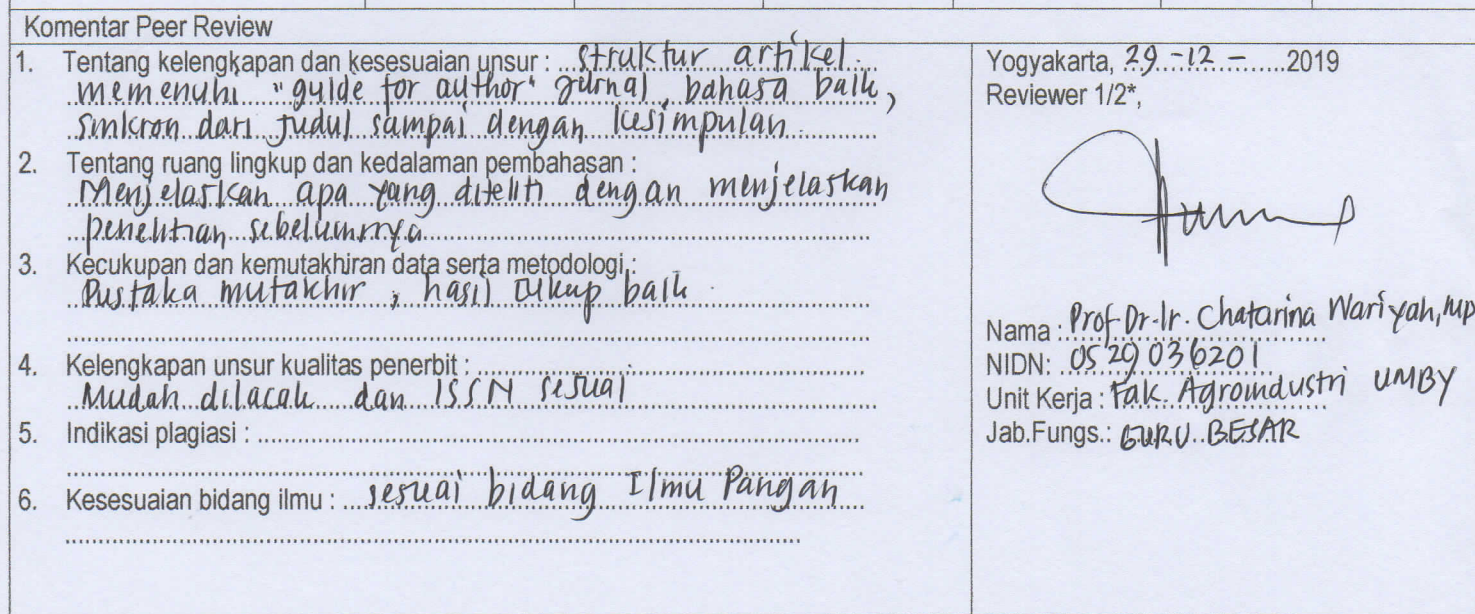 Komentar Peer Review
1. Tentang kelengkapan dan kesesuaian unsur : struktur artikel
memenuhi "guide for author" jurnal, bahasa baik,
sinkron dari judul sampai dengan kesimpulan.
2. Tentang ruang lingkup dan kedalaman pembahasan :
Menjelaskan apa yang diteliti dengan menjelaskan
penelitian sebelumnya
3. Kecukupan dan kemutakhiran data serta metodologi :
Pustaka mutakhir, hasil cukup baik
4. Kelengkapan unsur kualitas penerbit :
Mudah dilacak dan ISSN sesuai
5. Indikasi plagiasi :
6. Kesesuaian bidang ilmu : sesuai bidang Ilmu Pangan
Yogyakarta, 29-12-2019
Reviewer 1/2*,
Nama : Prof.Dr.Ir. Chatarina Wariyah, MP
NIDN: 0529036201
Unit Kerja : Fak. Agroindustri UMBY
Jab.Fungs.: GURU BESAR